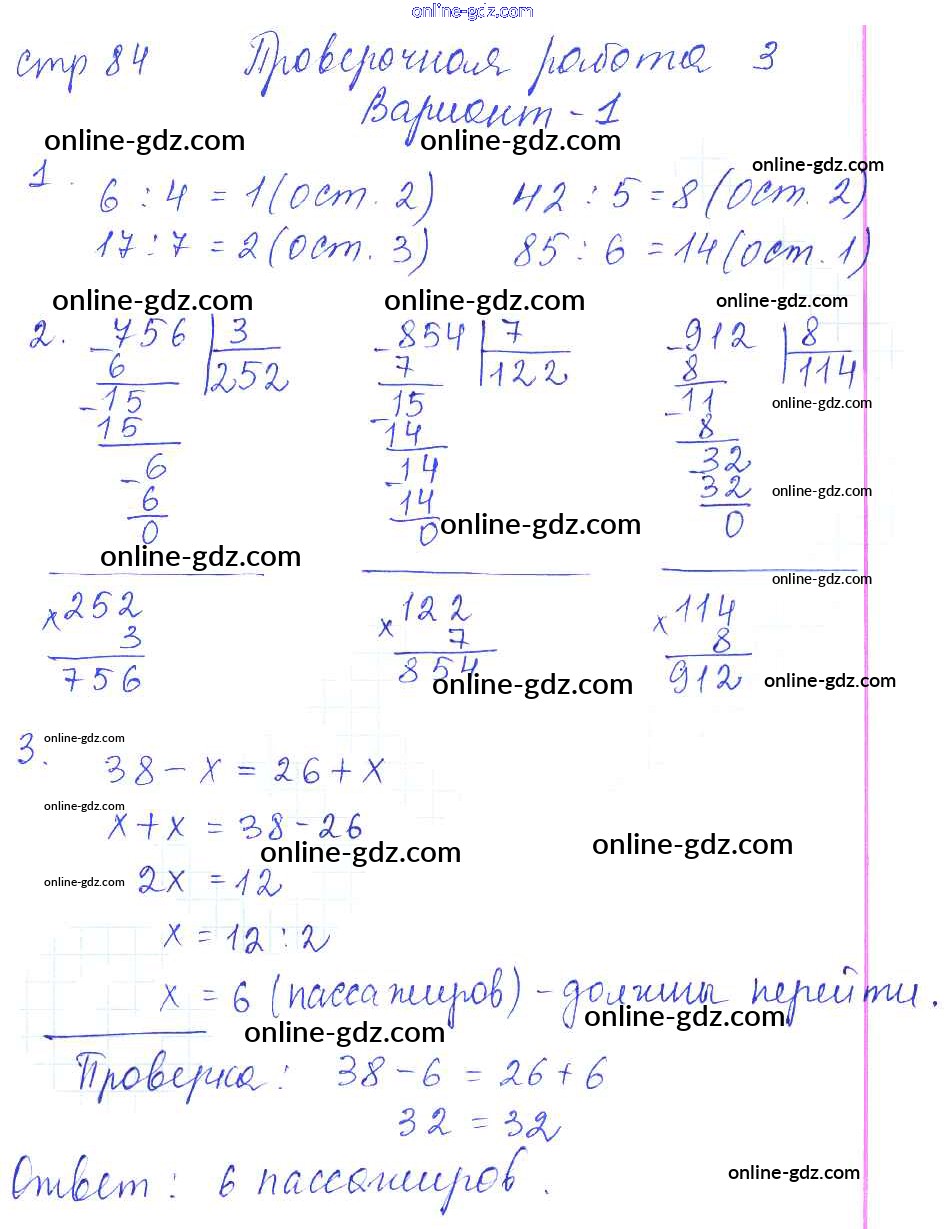 online-gdz.com
стр 84 Проверочная работа 3
Вариант - 1
online-gdz.com online-gdz.com online-gdz.com
1. 6 : 4 = 1 (ост. 2) 42 : 5 = 8 (ост. 2)
17 : 7 = 2 (ост. 3) 85 : 6 = 14 (ост. 1)
online-gdz.com online-gdz.com online-gdz.com
2. - 756 | 3 - 854 | 7 - 912 | 8
6 | 252 7 | 122 8 | 114
online-gdz.com
- 15 15 - 11
15 - 14 8
- 6 - 14 - 32
6 14 32 online-gdz.com
0 0 0
online-gdz.com online-gdz.com
online-gdz.com
x 252 x 122 x 114
3 7 8
756 854 912
online-gdz.com online-gdz.com
online-gdz.com
3. 38 - x = 26 + x
online-gdz.com
x + x = 38 - 26
online-gdz.com online-gdz.com
online-gdz.com 2x = 12
x = 12 : 2
x = 6 (пассажиров) - должны перейти.
online-gdz.com online-gdz.com
Проверка: 38 - 6 = 26 + 6
32 = 32
online-gdz.com
Ответ: 6 пассажиров.